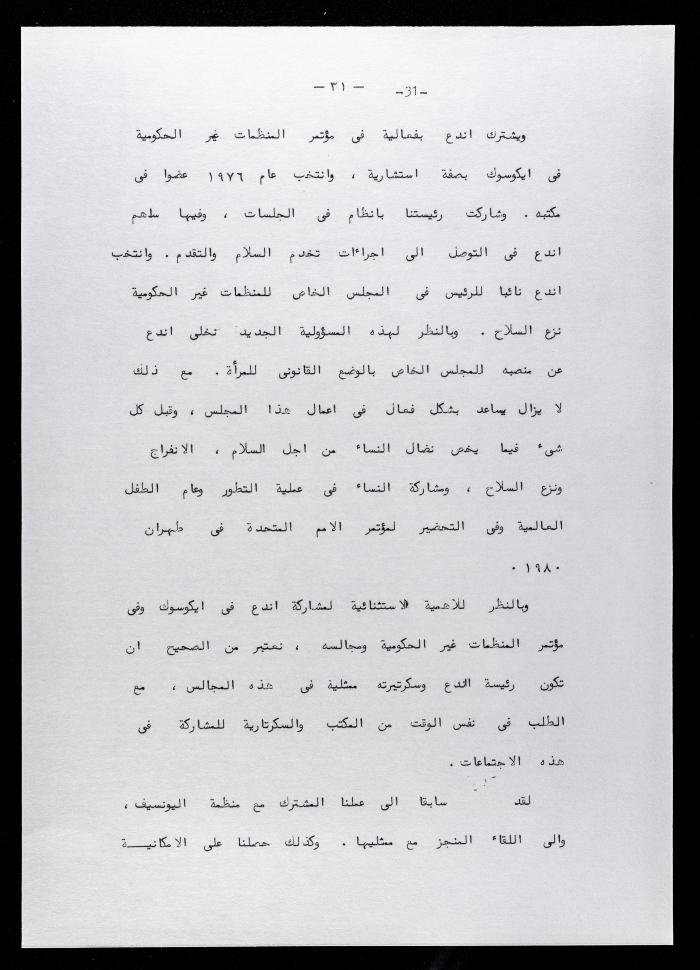 — ٣١ — -31-
ويشترك اندع بفعالية فى مؤتمر المنظمات غير الحكومية
فى ايكوسوك بصفة استشارية ، وانتخب عام ١٩٧٦ عضوا فى
مكتبه . وشاركت رئيستنا بانظام فى الجلسات ، وفيها ساهم
اندع فى التوصل الى اجراءات تخدم السلام والتقدم . وانتخب
اندع نائبا للرئيس فى المجلس الخاص للمنظمات غير الحكومية
نزع السلاح . وبالنظر لهذه المسؤولية الجديد تخلى اندع
عن منصبه للمجلس الخاص بالوضع القانونى للمرأة . مع ذلك
لا يزال يساعد بشكل فعال فى اعمال هذا المجلس ، وقبل كل
شىء فيما يخص نضال النساء من اجل السلام ، الانفراج
ونزع السلاح ، ومشاركة النساء فى عملية التطور وعام الطفل
العالمية وفى التحضير لمؤتمر الامم المتحدة فى طهران
١٩٨٠ .
وبالنظر للاهمية الاستثنائية لمشاركة اندع فى ايكوسوك وفى
مؤتمر المنظمات غير الحكومية ومجالسه ، نعتبر من الصحيح ان
تكون رئيسة اندع وسكرتيرته ممثلية فى هذه المجالس ، مع
الطلب فى نفس الوقت من المكتب والسكرتارية للمشاركة فى
هذه الاجتماعات .
لقد سابقا الى عملنا المشترك مع منظمة اليونسيف ،
والى اللقاء المنجز مع ممثليها . وكذلك حصلنا على الامكانيـــة